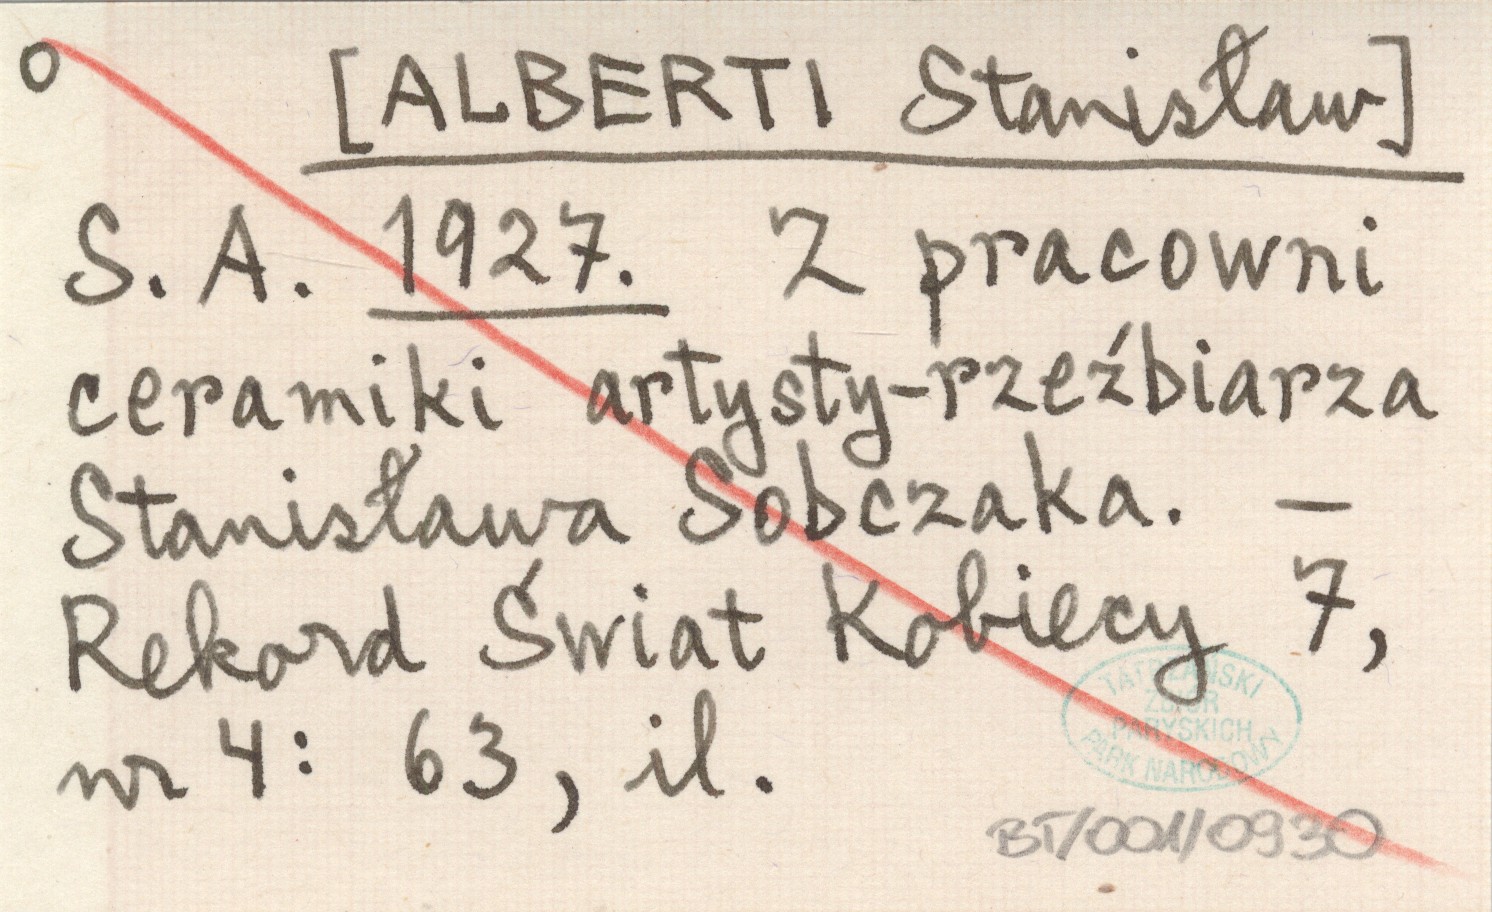 o [ALBERTI Stanisław]
S. A. 1927. Z pracowni
ceramiki artysty-rzeźbiarza
Stanisława Sobczaka. –
Rekord Świat Kobiecy 7,
nr 4: 63, il.
TATRZAŃSKI
ZBIÓR
PARYSKICH
PARK NARODOWY
BT/001/0930